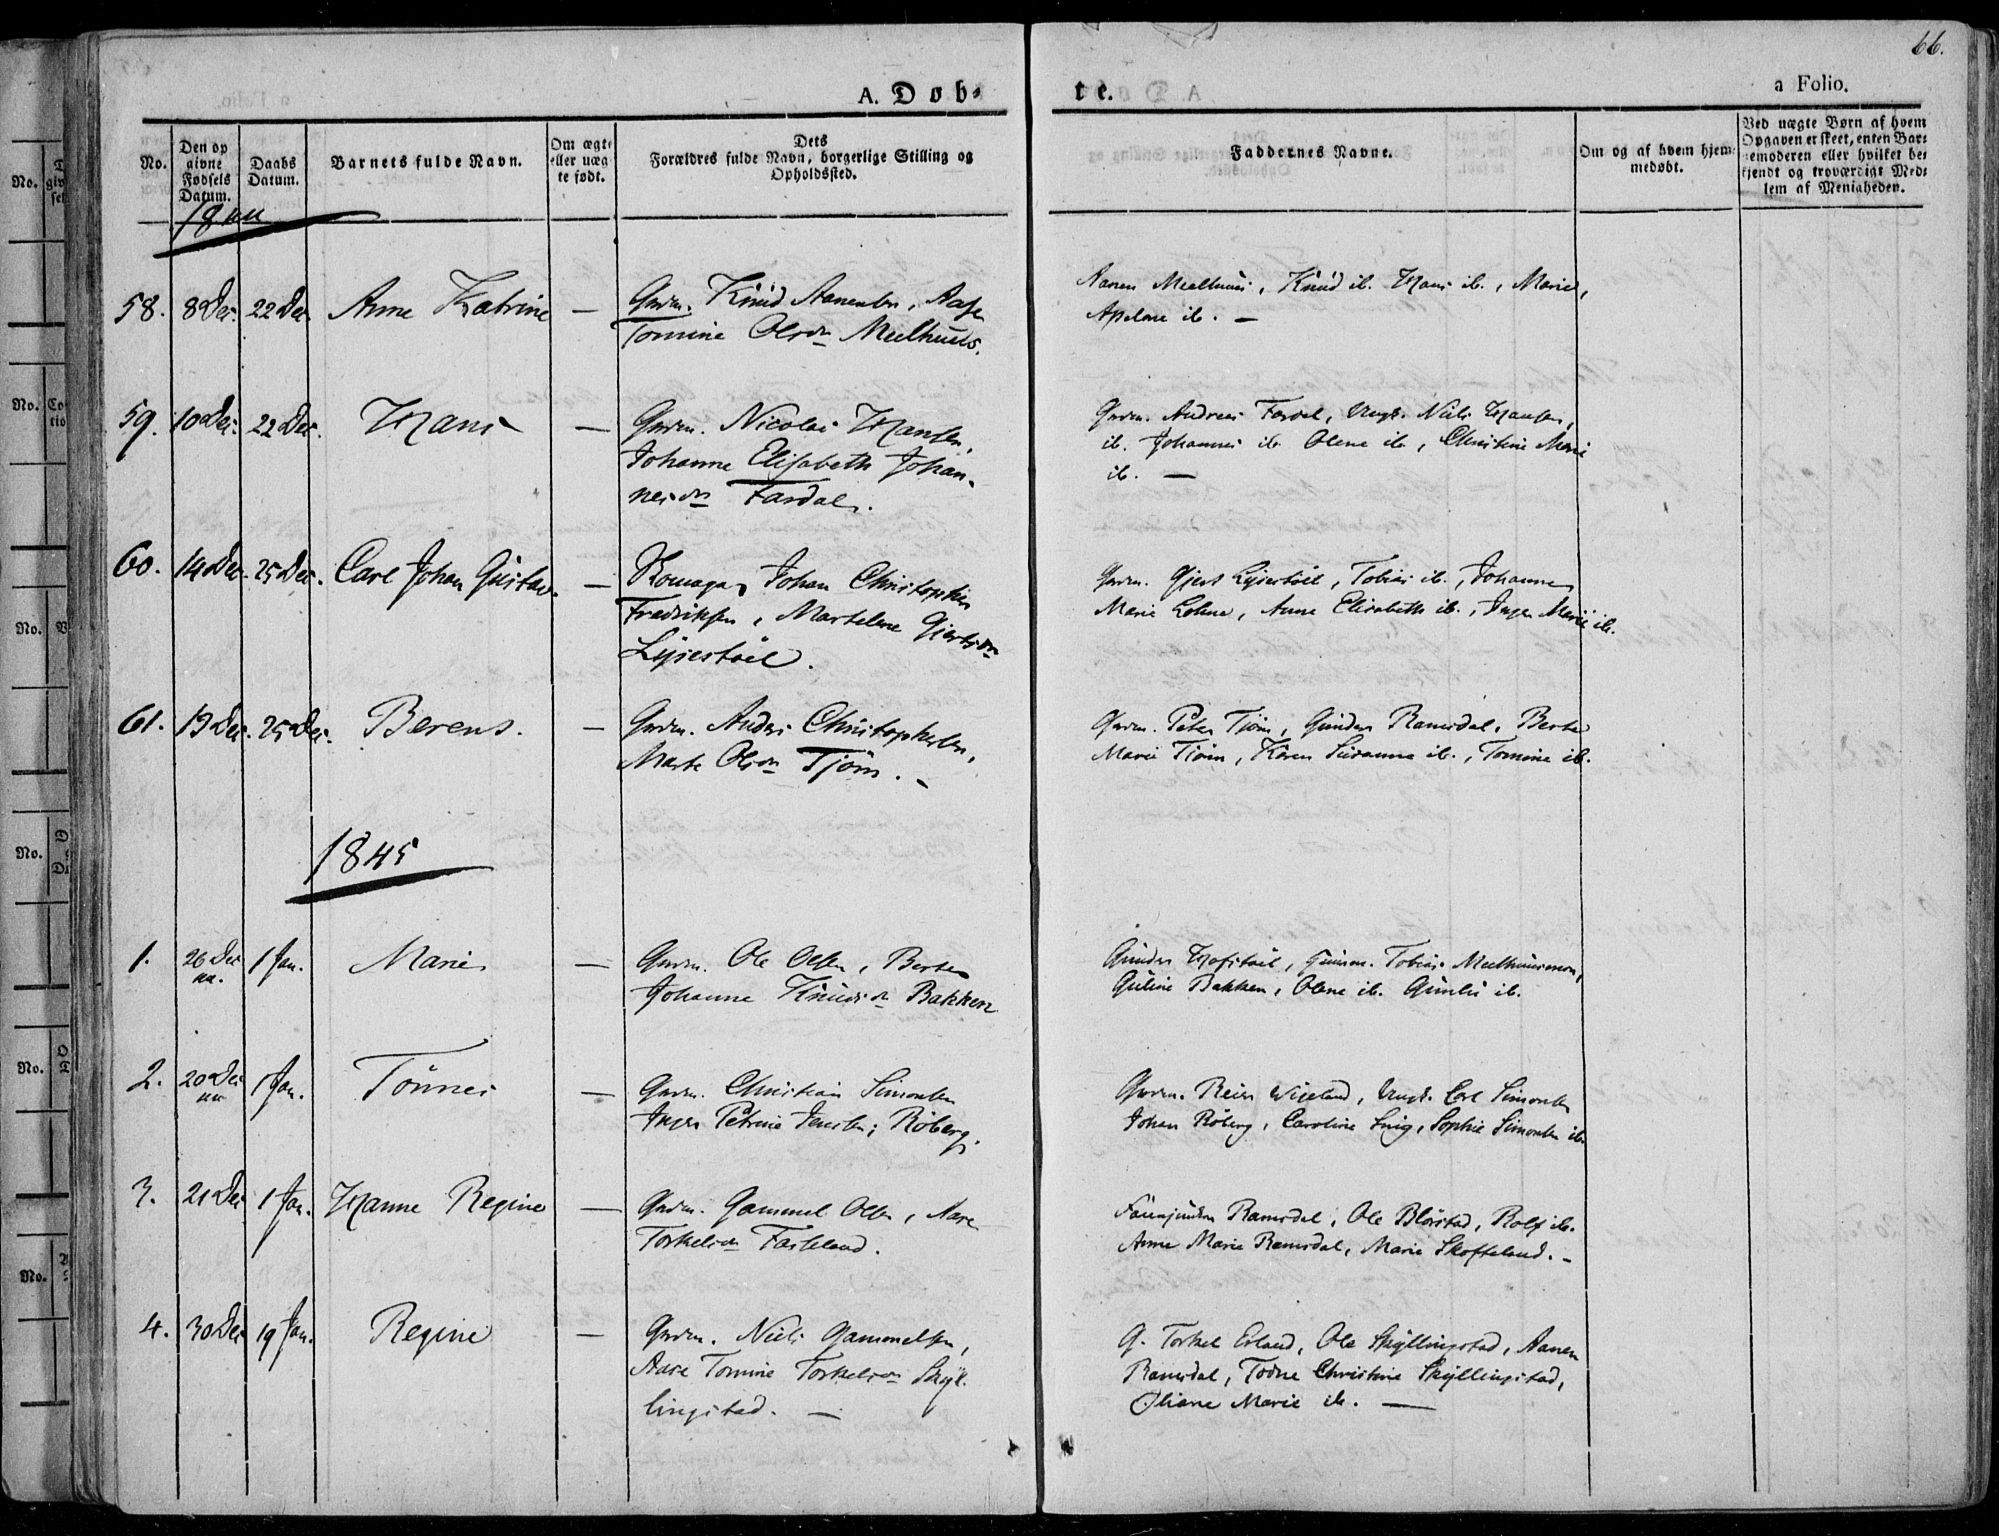 66.
A. Døb-
te.
a Folio.
No.
Den op
givne
Fødsels
Datum.
Daabs
Datum.
Barnets fulde Navn.
Om ægte
eller uæg
te født.
Dets
Forældres fulde Navn, borgerlige Stilling og
Opholdssted.
Faddernes Navne.
Om og af hvem hjem-
medøbt.
Ved uægte Børn af hvem
Opgaven er skeet, enten Bar-
nemoderen eller hvilket be-
kjendt og troværdigt Med-
lem af Menigheden.
1844
58. 8 Dec. 22 Dec. Anne Katrine —
Gmdm. Knud Aanensen, Aase
Tomine Olsdn Meelhuus.
Aanen Meelhuus, Knud ib. Hans ib., Marie,
Apelone ib. —
59. 10 Dec. 22 Dec. Hans —
Gmdm. Nicolai Hansen,
Johanne Elisabeth Johan-
nesdn Fardal.
Gmdm. Andreas Fardal, Ungk. Niels Hansen,
ib. Johannes ib. Olene ib, Christine Marie
ib. —
60. 14 Dec. 25 Dec. Carl Johan Gustav. —
Johan Christopher
Fredriksen, Martelene Gjertsdn
Lyiestöel.
Gmdm. Gjert Lyiestöel, Tobias ib., Johanne
Marie Lohne, Anne Elisabeth ib., Inger Marie ib.
61. 19 Dec. 25 Dec. Berent. —
Gmdm. Anders Christophersen,
Marte Olsdn Tjöm. —
Gmdm. Peter Tjöm, Gunder Ramsdal, Berte
Marie Tjöm, Karen Susanne ib., Tomine ib.
1845
1. 26 Dec 1 Jan. Marie —
44.
Gmdm. Ole Olsen, Berte
Johanne Knudsdn Bakken
Gunder Hofstöel, Tobias Meelhuusmoen,
Guline Bakken, Olene ib. Gunild ib.
2. 20 Dec 1 Jan. Tönnes —
44
Gmdm. Christian Simonsen
Inger Petrine Jensdn, Röberg.
Gmdm. Reier Wigeland, Ungk. Carl Simonsen
Johan Röberg, Caroline Snig, Sophie Simonsen ib.
3. 21 Dec 1 Jan. Hanne Regine —
Gmdm. Gammel Olsen, Aase
Torkelsdn Faskeland.
Ramsdal, Ole Blörstad, Rolf ib.
Anne Marie Ramsdal, Marie Skofteland. —
4. 30 Dec 19 Jan. Regine —
Gmdm. Niels Gammelsen,
Aase Tomine Torkelsdn Skyl-
lingstad. —
G. Torkel Erland, Ole Skyllingstad, Aanen
Ramsdal, Todne Christine Skyllingstad,
Oliane Marie ib. —